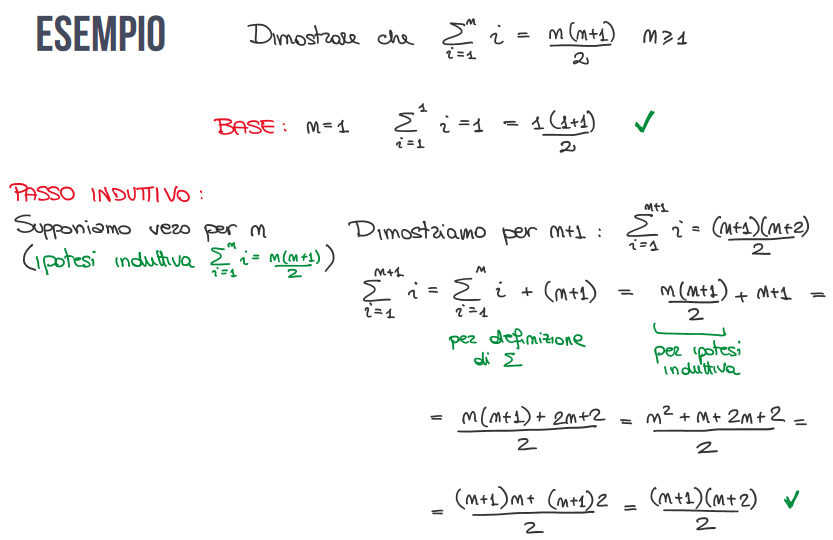 ESEMPIO
Dimostrare che ∑_{i=1}^{n} i = n(n+1)/2 n ≥ 1
BASE: n=1 ∑_{i=1}^{1} i = 1 = 1(1+1)/2 ✓
PASSO INDUTTIVO:
Supponiamo vero per n
(ipotesi induttiva ∑_{i=1}^{n} i = n(n+1)/2)
Dimostriamo per n+1: ∑_{i=1}^{n+1} i = (n+1)(n+2)/2
∑_{i=1}^{n+1} i = ∑_{i=1}^{n} i + (n+1) = n(n+1)/2 + n+1 =
per definizione
di ∑
per ipotesi
induttiva
= n(n+1) + 2n+2/2 = n² + n + 2n + 2/2 =
= (n+1)n + (n+1)2/2 = (n+1)(n+2)/2 ✓